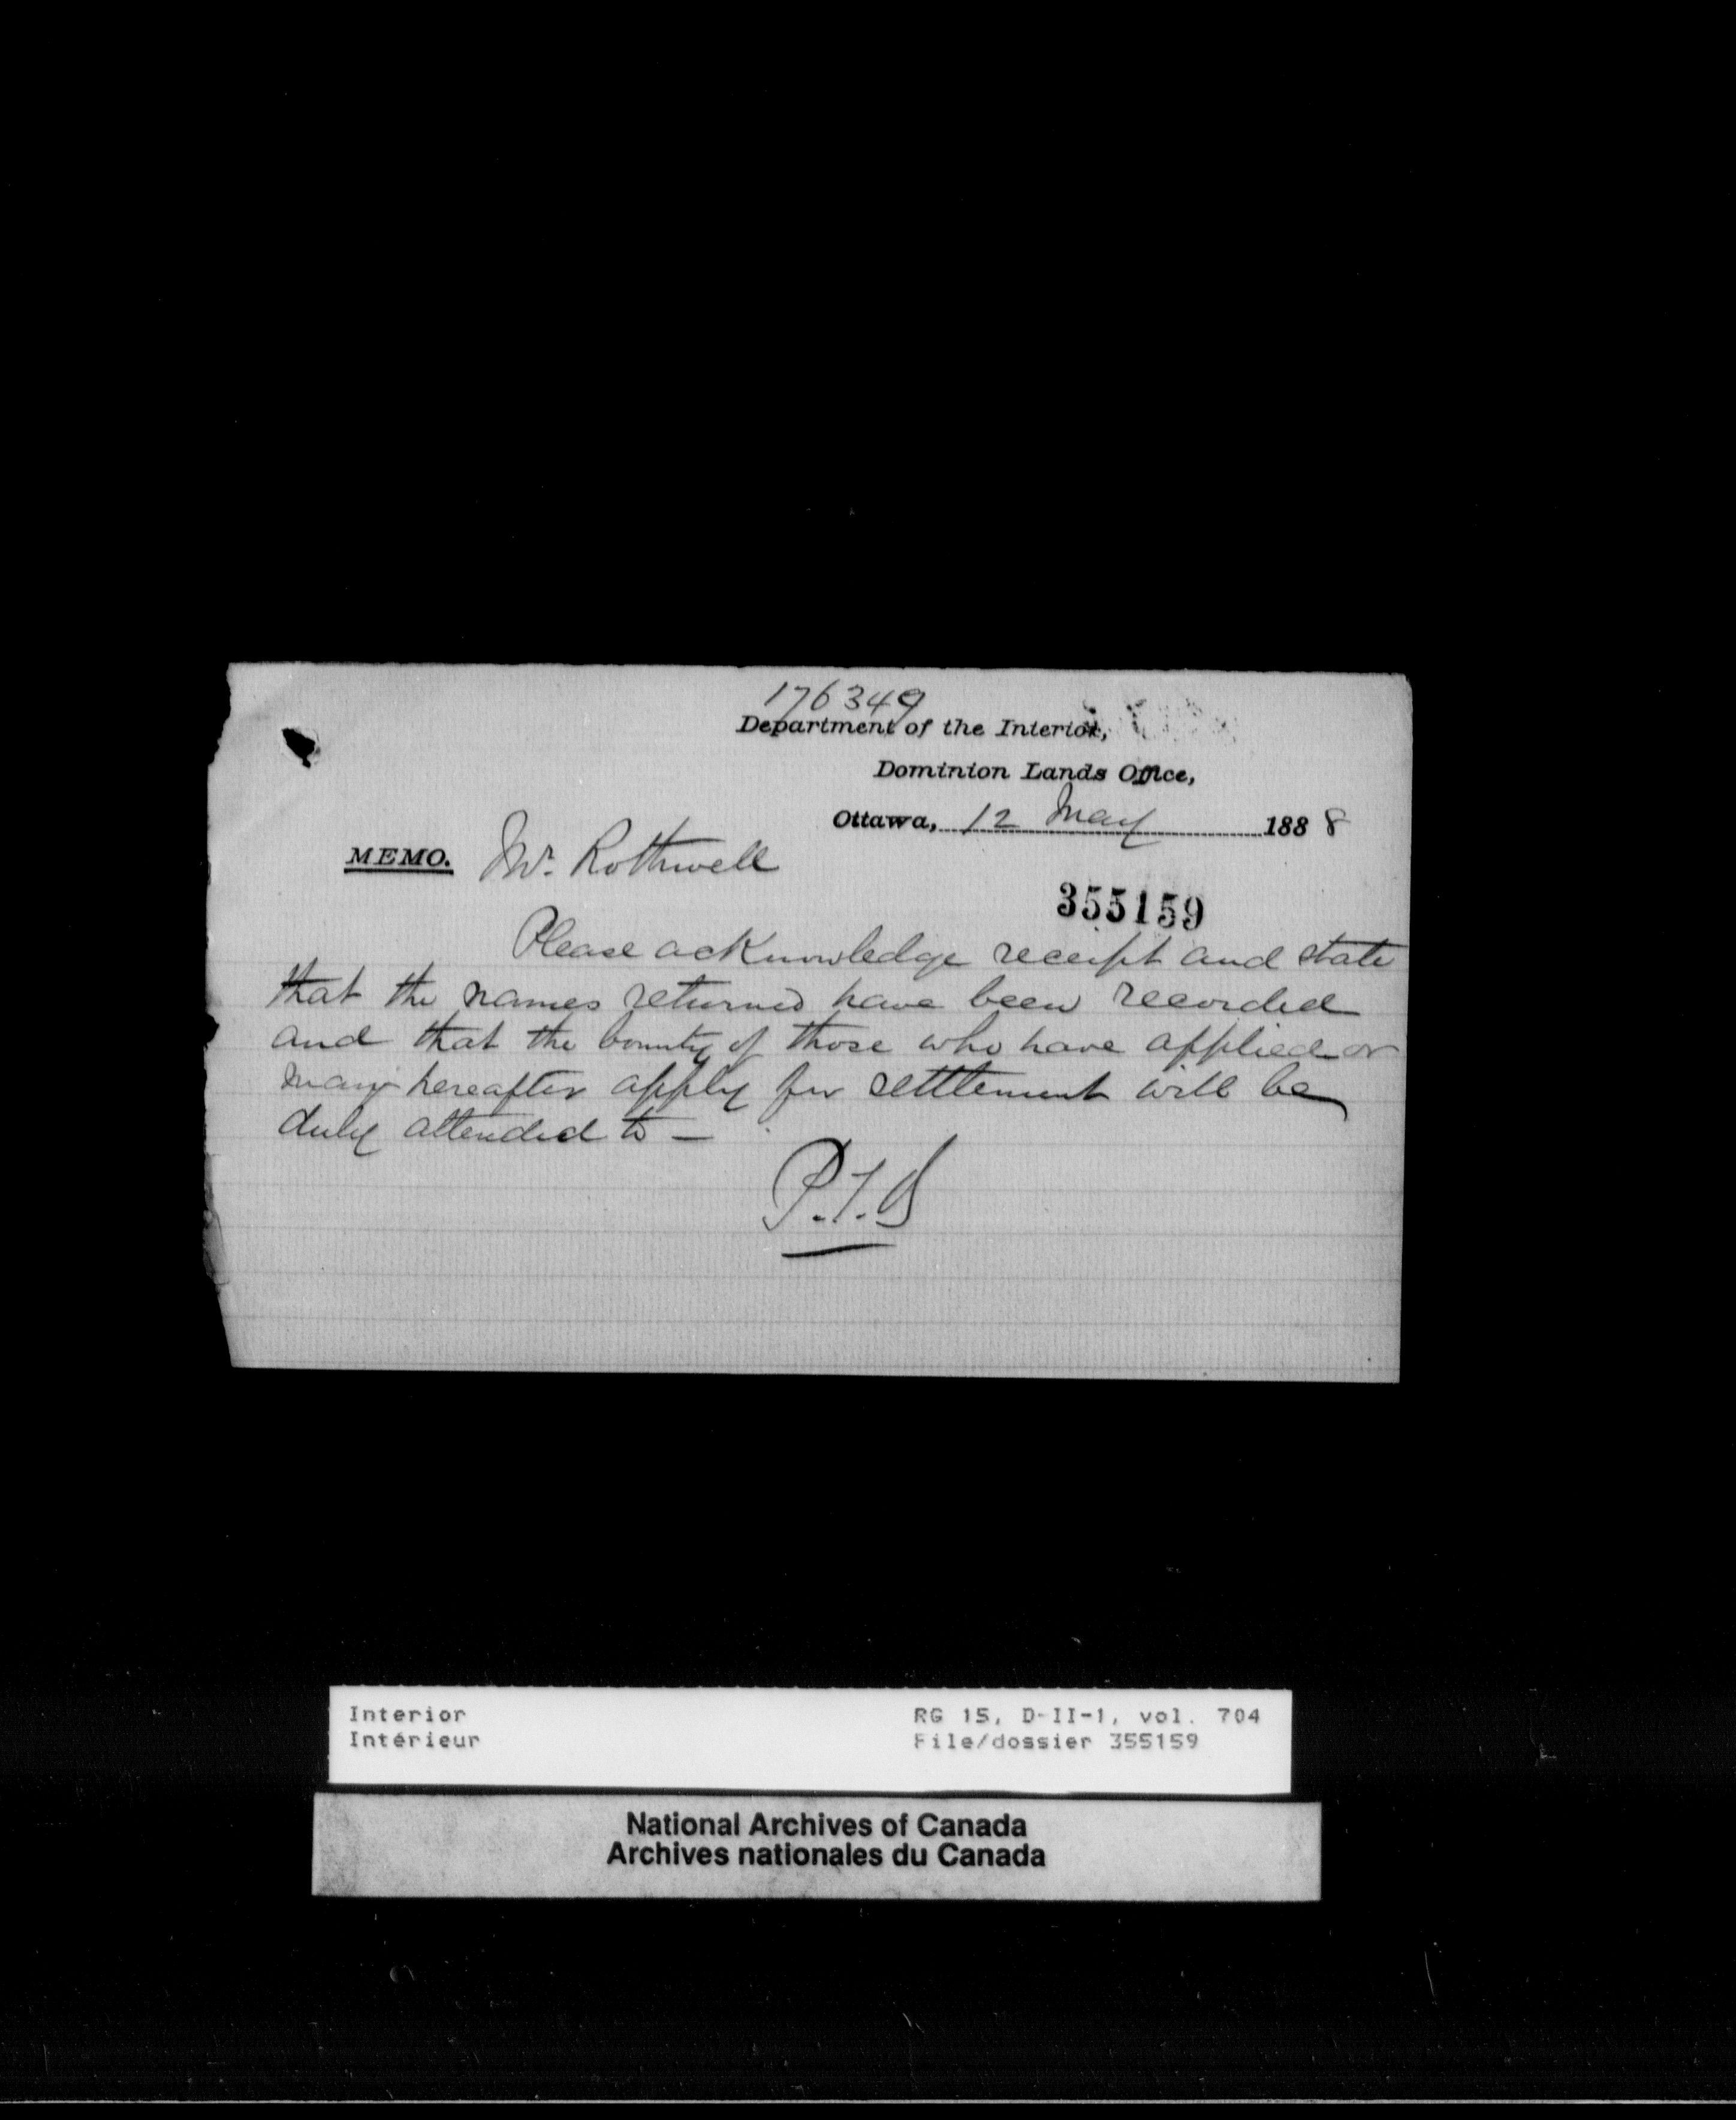 176349
Department of the Interior,
Dominion Lands Office,
Ottawa, 12 May 1888
MEMO. Mr. Rothwell
355159
Please acknowledge receipt and state
that the names returned have been recorded
and that the bounty of those who have applied or
may hereafter apply for settlement will be
duly attended to —
Interior
Intérieur
RG 15, D-II-1, vol. 704
File/dossier 355159
National Archives of Canada
Archives nationales du Canada